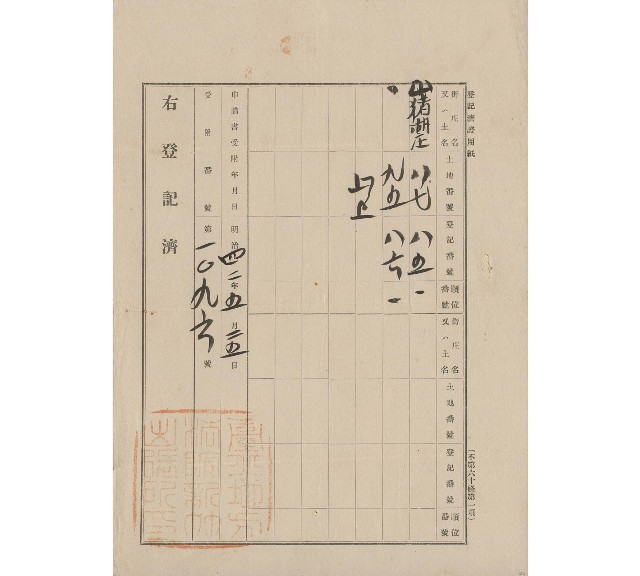 登記濟證用紙
街庄名又ハ土名 土地番號 登記番號 順位番號 街庄名又ハ土名 土地番號 登記番號 順位番號
山猪湖庄 八七 八五 一
〃 九五 八六 一
以上
申請書受附年月日 明治四二年五月二五日
受附番號 第一〇九六號
右登記濟